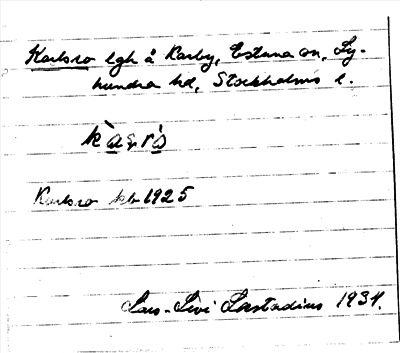 Karlsro lgh å Karby, Estuna sn, Ly-
hundra hd, Stockholms l.
Karlsro kb 1925
Lars-Levi Læstadius 1931.